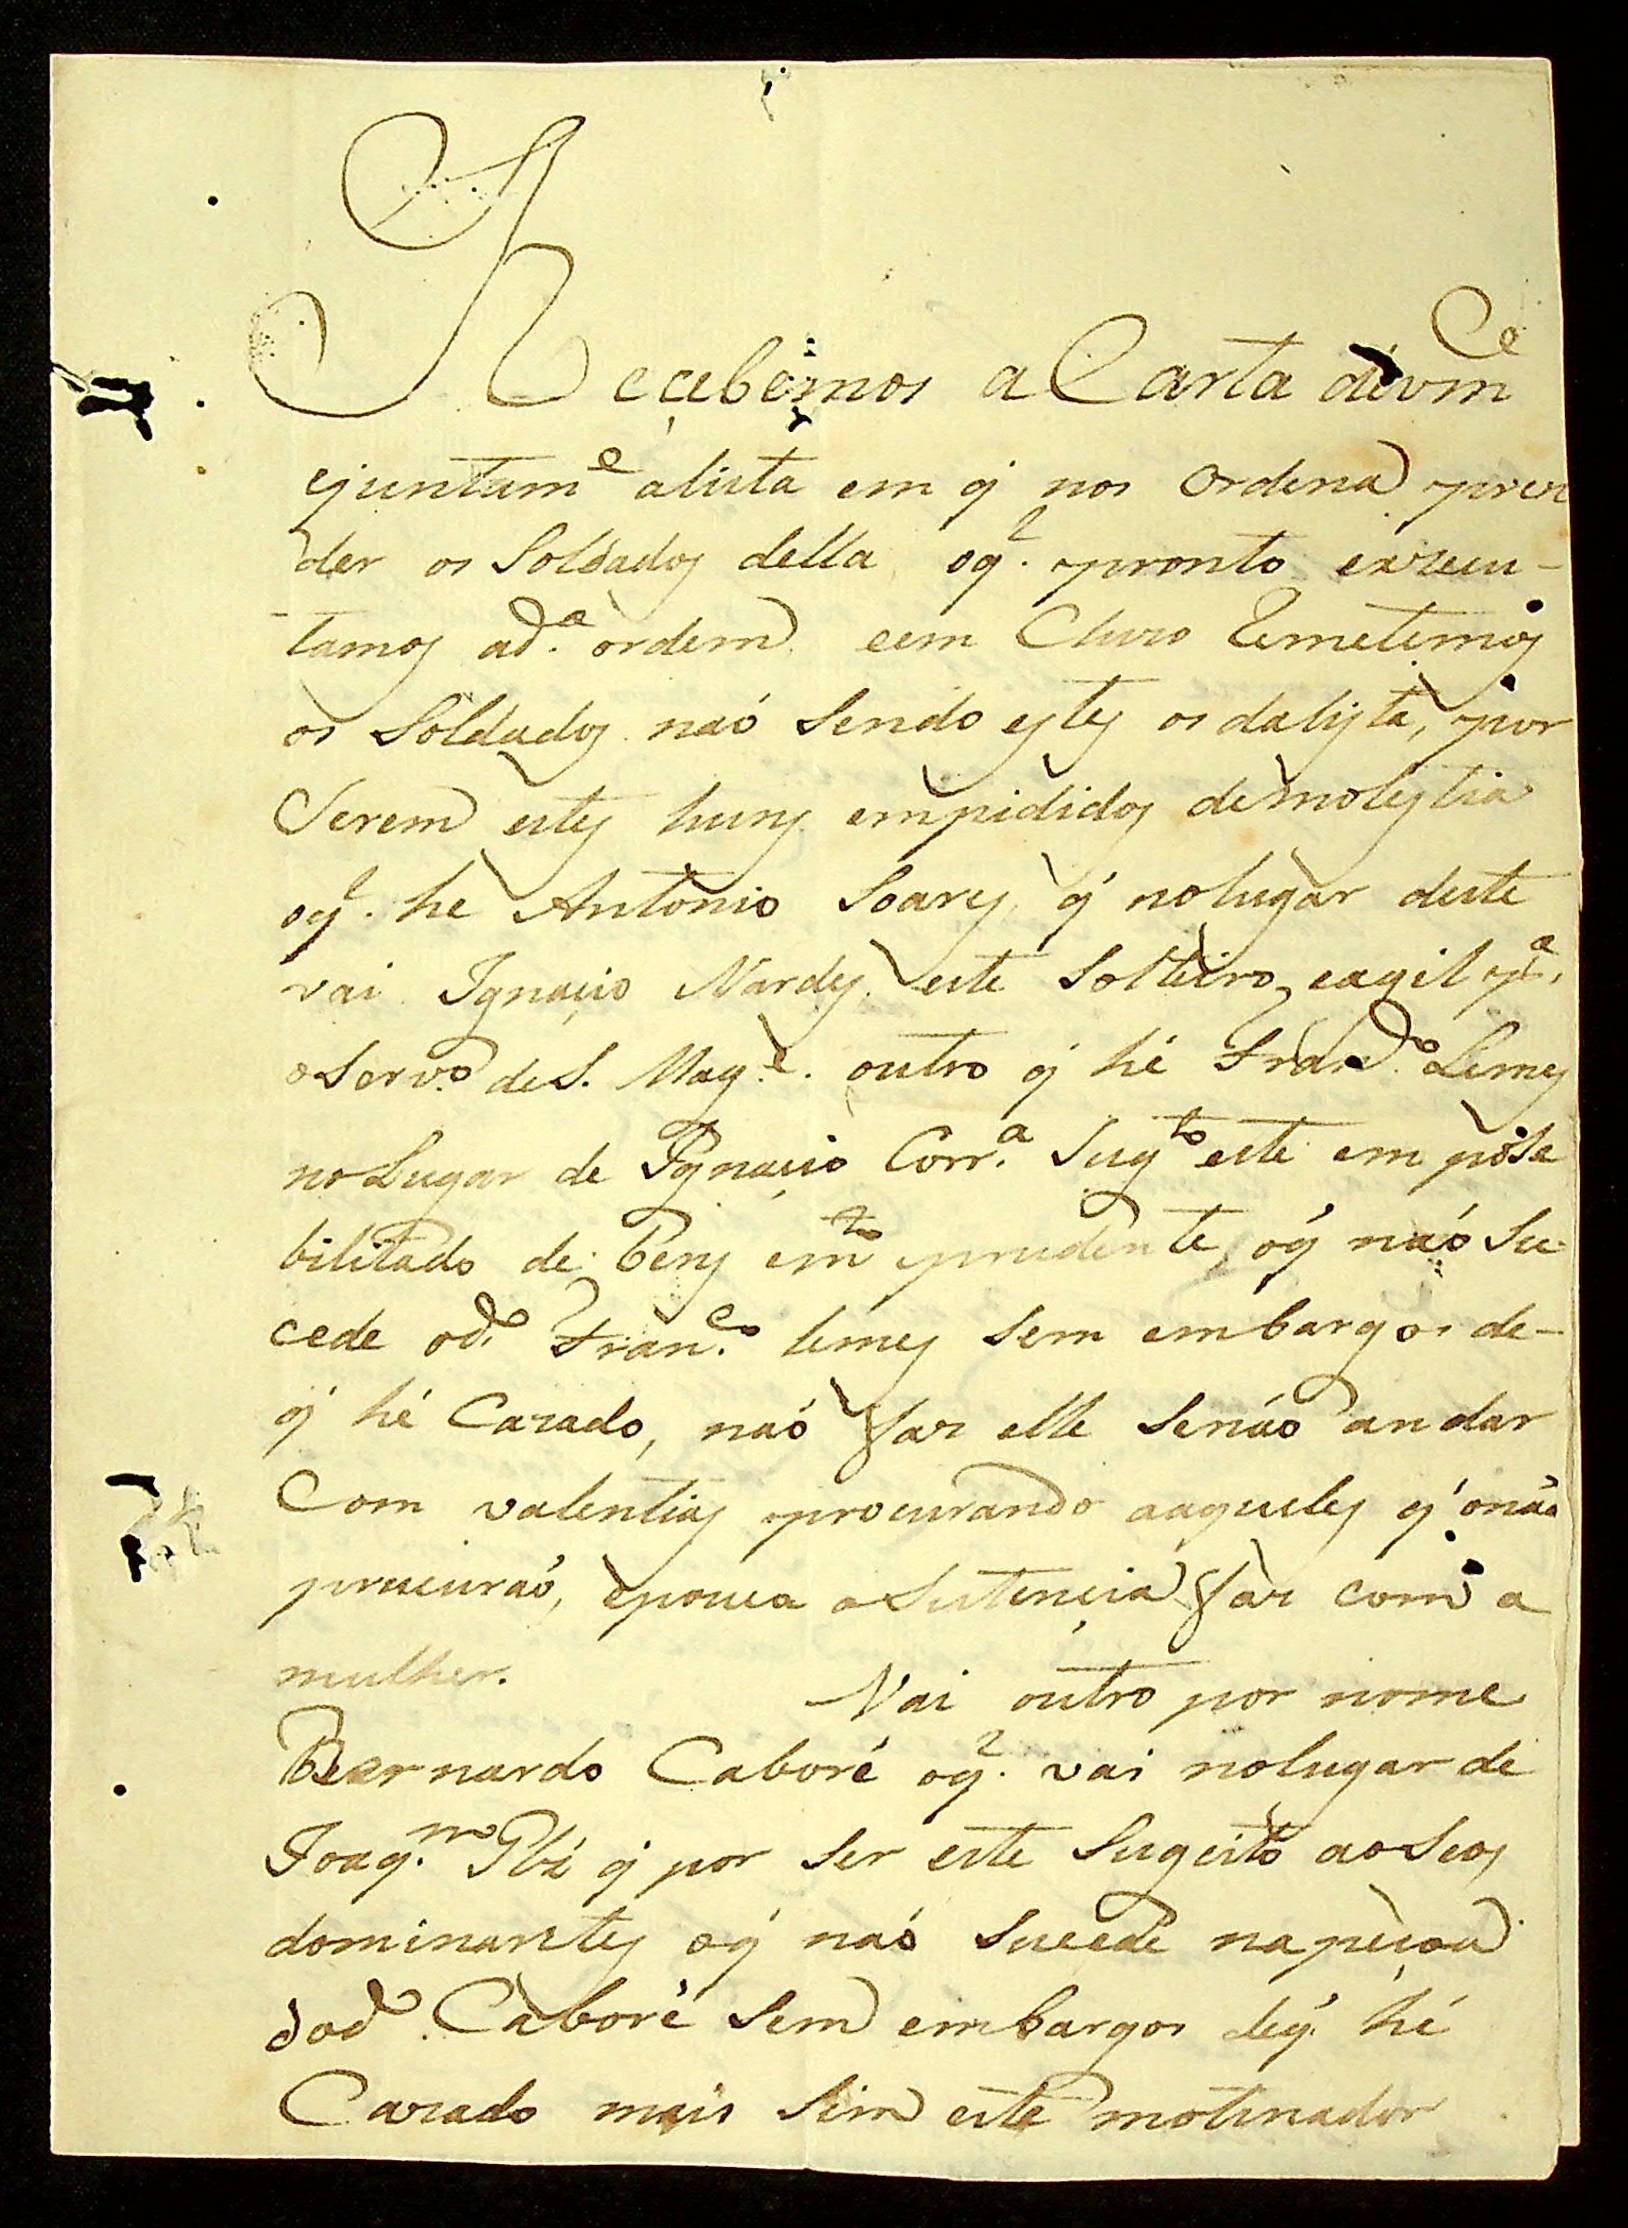 Recebemos a Carta devm^ce
ejuntam^e alista em q' nos ordena pren
der os Soldados della oq^l. pronto exzecu-
tamos ad^a. ordem, eem Chuzo Remetemos
os Soldados naó Sendo estes os dalista, por
Serem estes huns empididos demolestia
oq^l. he Antonio Soares q' nolugar deste
vai Ignacio Nardes, este Solteiro, eagil p^a.
oServ^o. deS. Mag^e. outro q' hé Fran^co. Lemes
noLugar de Ignacio Corr.^a Sug^to este em posi
bilitado de bens em^to prudente, óq' naó Su-
cede od^o. Fran^co. Lemes Sem embargos de-
q' hé Cazado, naó faz elle Senáo andar
Com valentias procurando aaqueles q' onáo
procuraó, epouca aSistencia faz com a
mulher.
Vai outro por nome
Bernardo Caboré oq^l. vai nolugar de
Joaq^m. Ibí q' por Ser este Sugeito aoSeos
dominantes oq' naó Sucede napecoa
dod^o. Caboré Sem embargos deq' hé
Cazado mais Sim este motinador